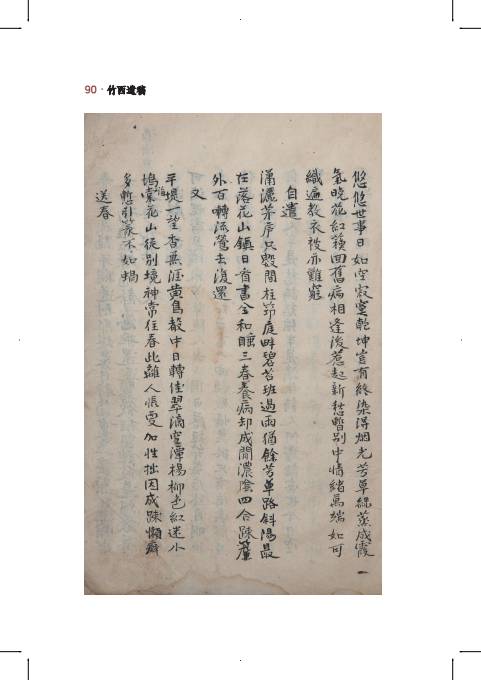 90 · 竹西遺稿
悠悠世事日如空寂寞乾坤豈有終染得烟光芳草綠蒸成霞
氣晩花紅積回舊病相逢後惹起新愁暫別中情緖萬端如可
織遍敎衣被亦難窮
自遣
瀟灑茅序只數間柱笻庭畔碧苔班過雨猶餘芳草路斜陽最
在落花山鎭日看書全和睡三春養病却成閒濃陰四合踈簾
外百囀流鶯去復還
又
平堤一望杳無涯黃鳥聲中日轉佳翠滴空潭楊柳色紅迷小
塢海棠花山徒別境神常住春此離人悵受加性拙因成踈懶癖
多慙引篆不如蝸
送春